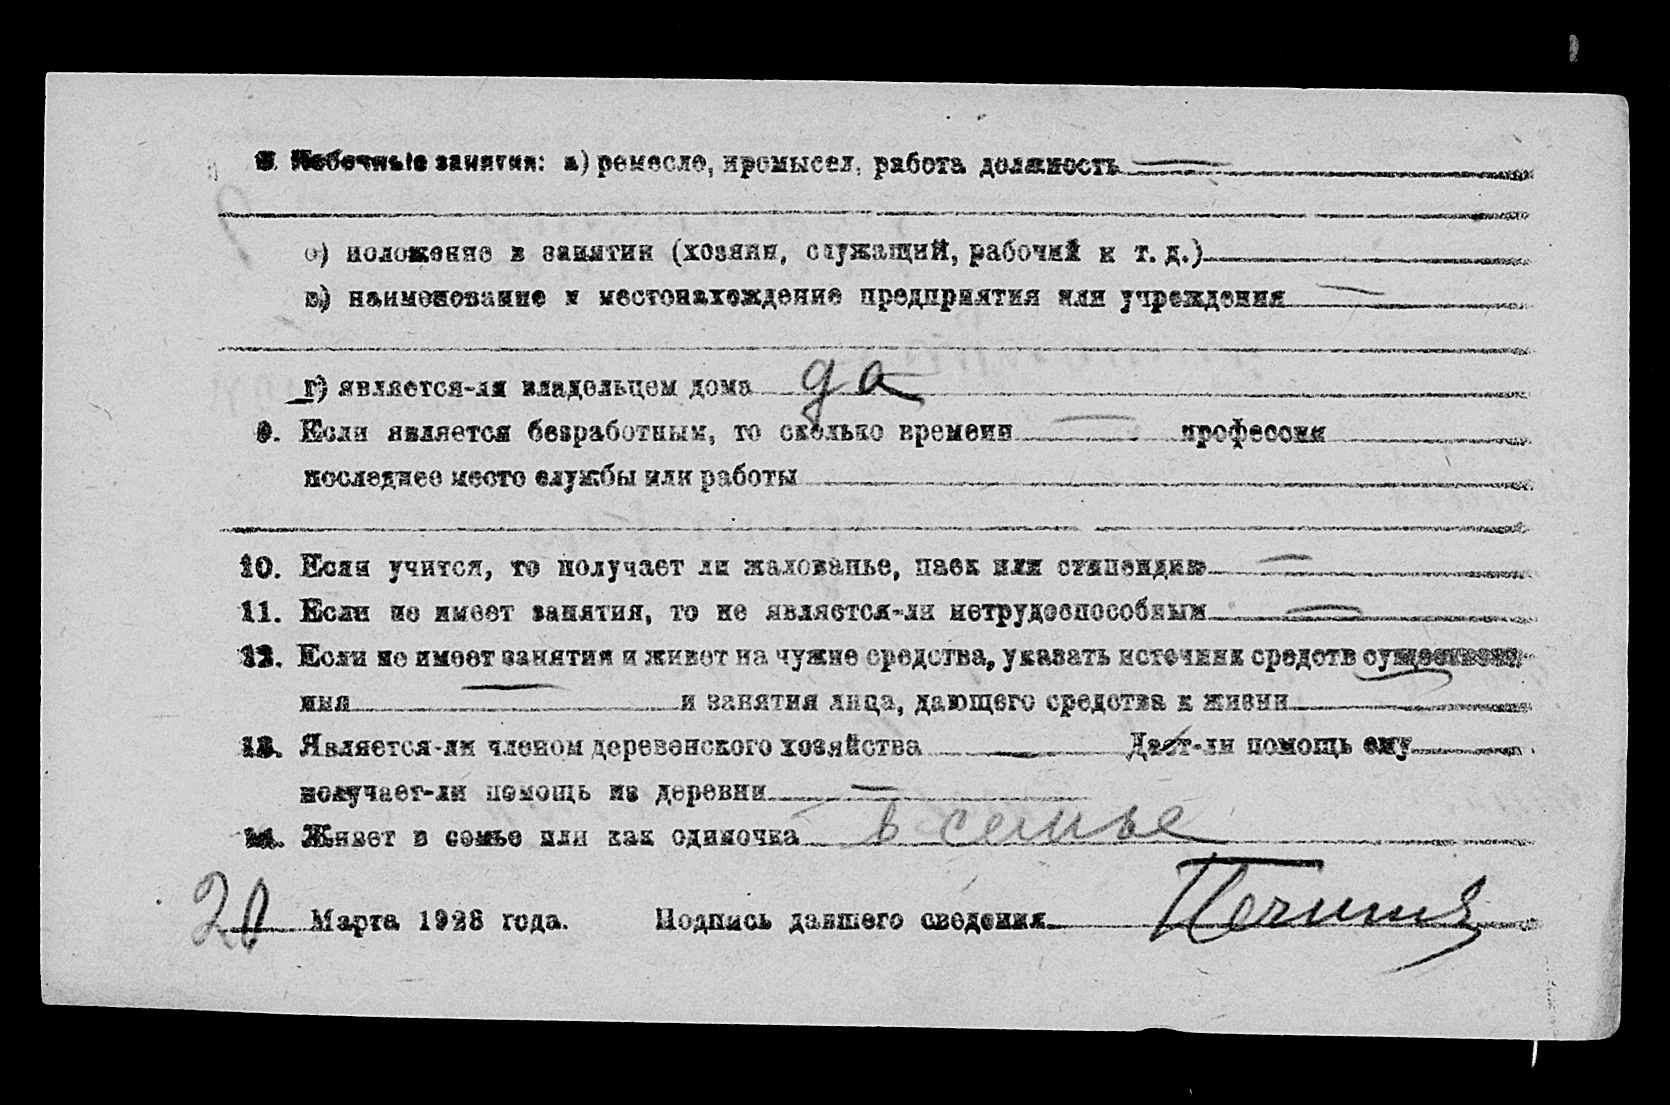 8. Побочные занятия: а) ремесло, промысел, работа должность
б) положение в занятии (хозяин, служащий, рабочий и т. д.)
в) наименование и местонахождение предприятия или учреждения
г) является-ли владельцем дома да
9. Если является безработным, то сколько времени профессия
последнее место службы или работы
10. Если учится, то получает ли жалованье, паек или стипендию
11. Если не имеет занятия, то не является-ли нетрудоспособным
12. Если не имеет занятия и живет на чужие средства, указать источник средств существова-
ния и занятия лица, дающего средства к жизни
13. Является-ли членом деревенского хозяйства Дает-ли помощь ему
получает-ли помощь из деревни
14. Живет в семье или как одиночка в семье
20 Марта 1928 года. Подпись давшего сведения